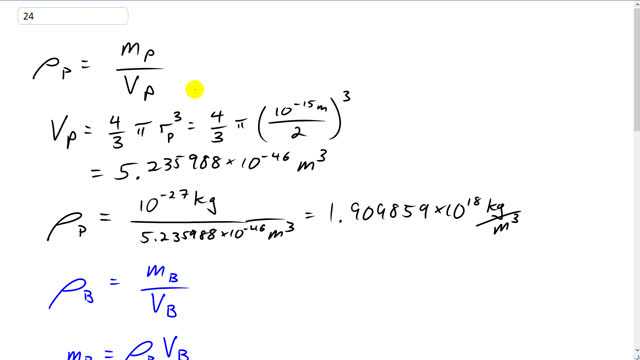 24
ρ_P = m_P / V_P
V_P = 4/3 π r_P^3 = 4/3 π (10^-15 m / 2)^3
= 5.235988 × 10^-46 m^3
ρ_P = 10^-27 kg / 5.235988 × 10^-46 m^3 = 1.909859 × 10^18 kg/m^3
ρ_B = m_B / V_B
m_B = ρ_B V_B